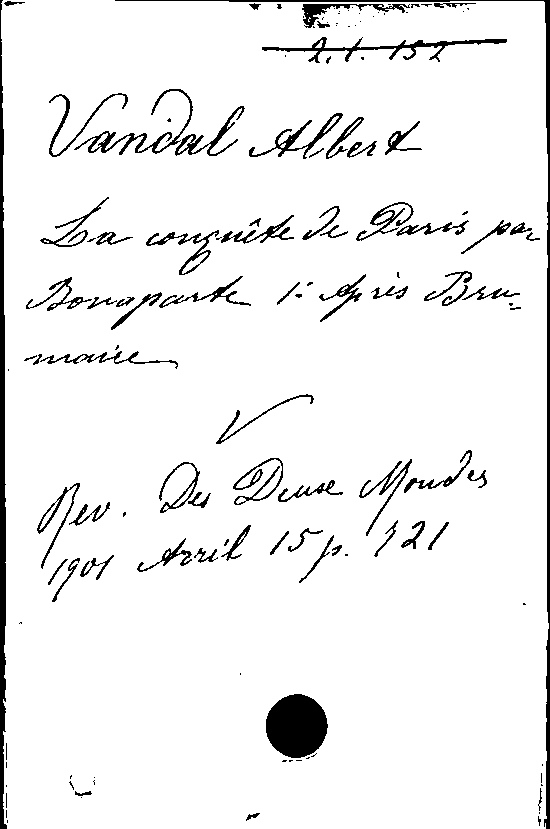 2.1.152
Vandal Albert
La conquête de Paris par
Bonaparte 1: Après Bru-
maire
Rev. Des Deux Mondes
1901 Avril 15 p. 721